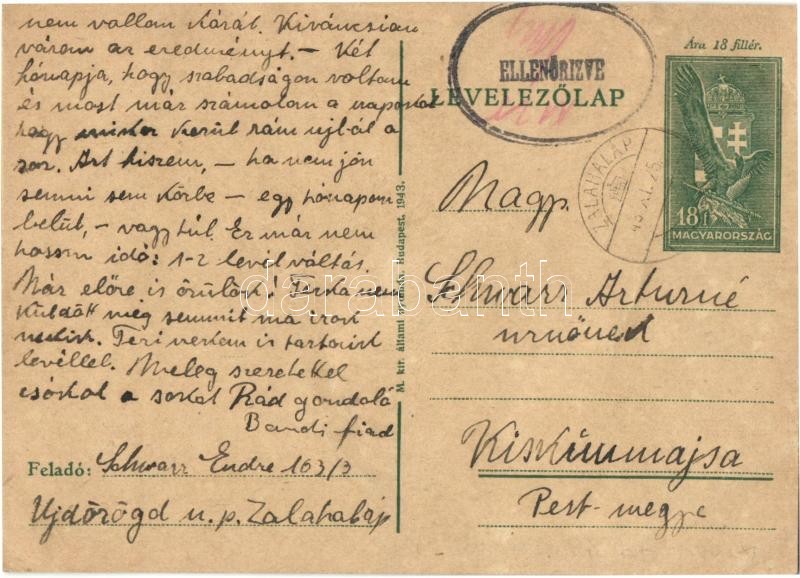 nem vallom kárát. Kiváncsian
várom az eredményt. – Két
hónapja, hogy szabadságon voltam
és most már számolom a napokat
hogy mikor kerül rám ujból a
sor. Azt hiszem, – ha nem jön
semmi sem közbe – egy hónapon
belül, – vagy túl. Ez már nem
hosszu idő: 1-2 levél váltás.
Már előre is örülök!
küldött még semmit ma irok
nekik. Teri nekem is tartozik
levéllel. Meleg szeretettel
csókol a sokat Rád gondoló
Bandi fiad
Feladó: Schwarz Endre 163/3
Ujdörögd u.p. Zalahaláp
M. kir. állami nyomda, Budapest, 1943.
ELLENŐRIZVE
LEVELEZŐLAP
Ára 18 fillér.
ZALAHALÁP
18 f
MAGYARORSZÁG
Nagys.
Schwarz Arturné
urnőnek
Kiskunmajsa
Pest-megye
darabanth